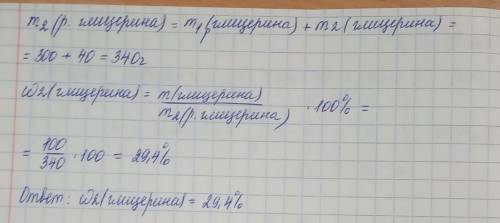 m₂(р. глицерина) = m₁(глицерина) + m2(глицерина) =
= 300 + 40 = 340г
ω2(глицерина) = m(глицерина) / m₂(р. глицерина) · 100% =
= 100/340 · 100 = 29,4%
Ответ: ω2(глицерина) = 29,4%